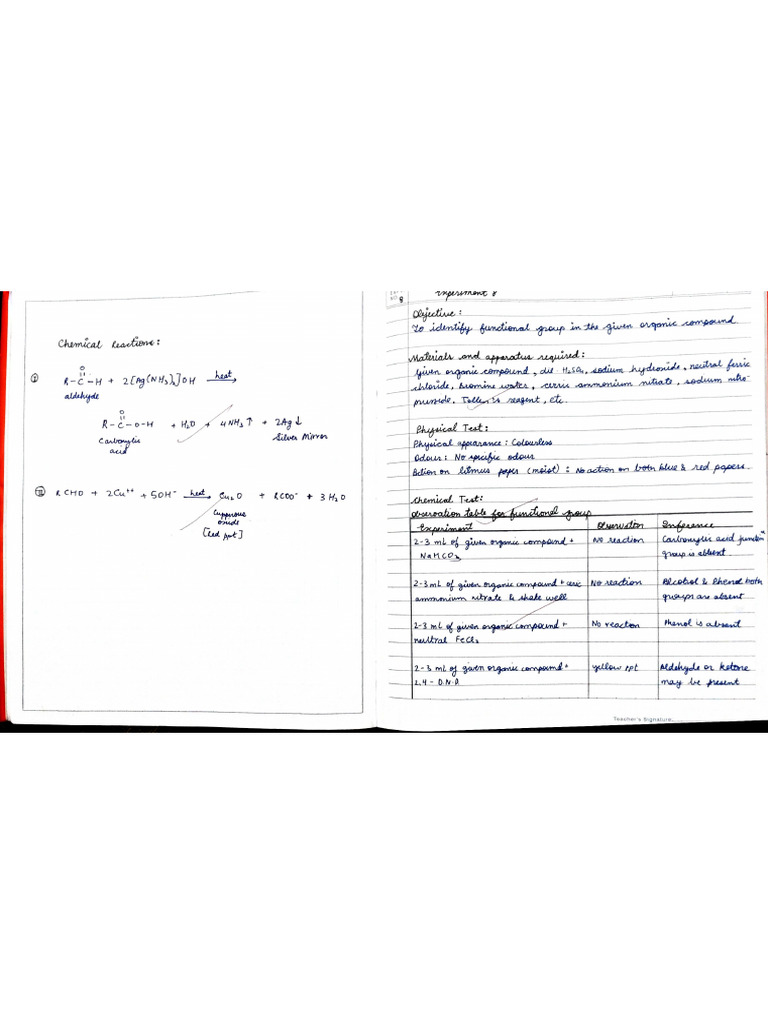 Chemical Reactions:
① R-C-H + 2[Ag(NH₃)₂]OH heat
O
aldehyde
O
R-C-O-H + H₂O + 4NH₃↑ + 2Ag↓
Carboxylic acid
Silver Mirror
② RCHO + 2Cu⁺⁺ + 5OH⁻ heat Cu₂O + RCOO⁻ + 3H₂O
Cupprous oxide
[Red ppt]
8
Experiment 8
Objective:
To identify functional group in the given organic compound.
Materials and apparatus required:
Given organic compound, dil. H₂SO₄, sodium hydroxide, neutral ferric
chloride, Bromine water, cerric ammonium nitrate, sodium nitro-
prusside, Tollen's reagent, etc.
Physical Test:
Physical appearance: Colourless
Odour: No specific odour
Action on litmus paper (moist): No action on both blue & red papers.
Chemical Test:
Observation table for functional group
Experiment Observation Inference
2-3 mL of given organic compound + No reaction Carboxylic acid function
NaHCO₃ group is absent.
2-3 mL of given organic compound + ceric No reaction Alcohol & Phenol both
ammonium nitrate & shake well groups are absent
2-3 mL of given organic compound + No reaction Phenol is absent
neutral FeCl₃
2-3 mL of given organic compound + yellow ppt Aldehyde or ketone
2,4-D.N.P. may be present
Teacher's Signature